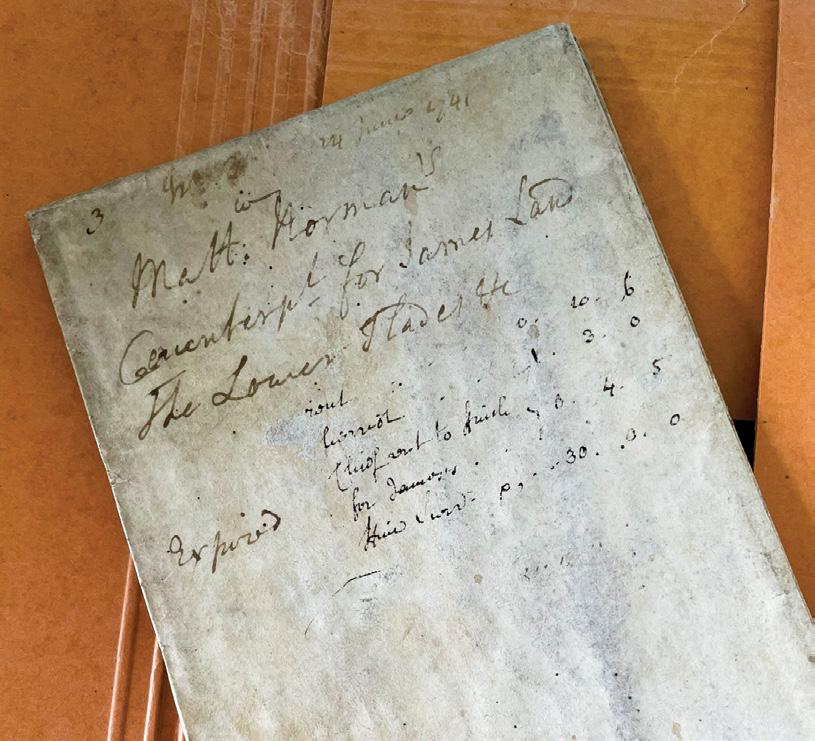 24 June 1741
3
Matt: Norman's
Counterpt for James Land
The Lower Slades &c
rent .. .. 0. 10. 6
herriot . . . 1. 3. 0
Chief rent to 0. 4. 5
for James . .
30. 0. 0
Expired